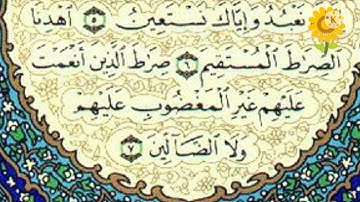 نَعْبُدُ وَإِيَّاكَ نَسْتَعِينُ ٥ ٱهْدِنَا
ٱلصِّرَٰطَ ٱلْمُسْتَقِيمَ ٦ صِرَٰطَ ٱلَّذِينَ أَنْعَمْتَ
عَلَيْهِمْ غَيْرِ ٱلْمَغْضُوبِ عَلَيْهِمْ
وَلَا ٱلضَّآلِّينَ ٧